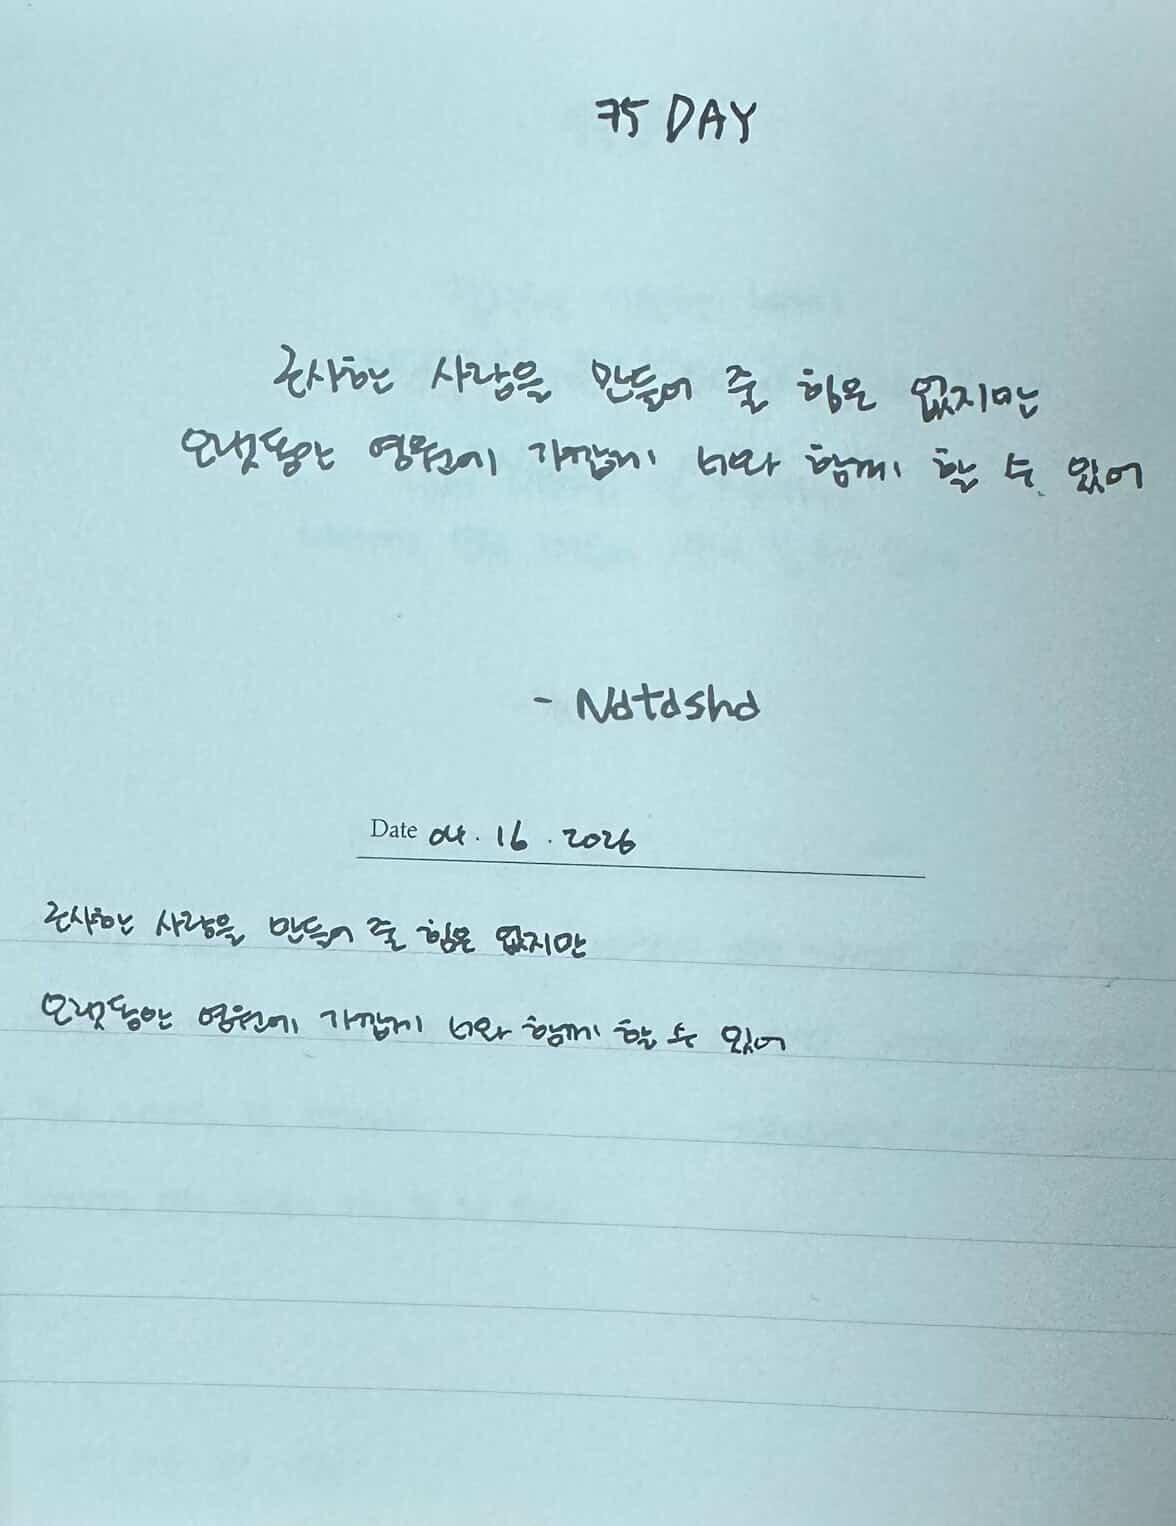 75 DAY
근사한 사람을 만들어 줄 힘은 없지만
오랫동안 영원에 가깝게 너와 함께 할 수 있어
- Natasha
Date 04. 16. 2026
근사한 사람을 만들어 줄 힘은 없지만
오랫동안 영원에 가깝게 너와 함께 할 수 있어